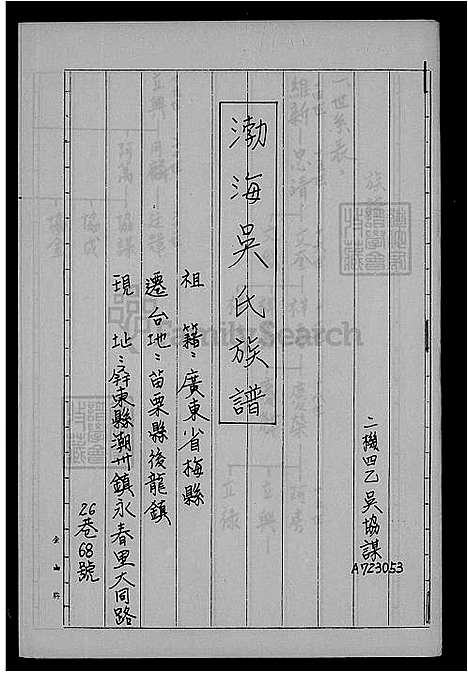 二機四乙吳協謀
A723053
渤海吳氏族譜
祖籍：廣東省梅縣
遷台地：苗栗縣後龍鎮
現址：屏東縣潮州鎮永春里大同路
26巷68號
FamilySearch